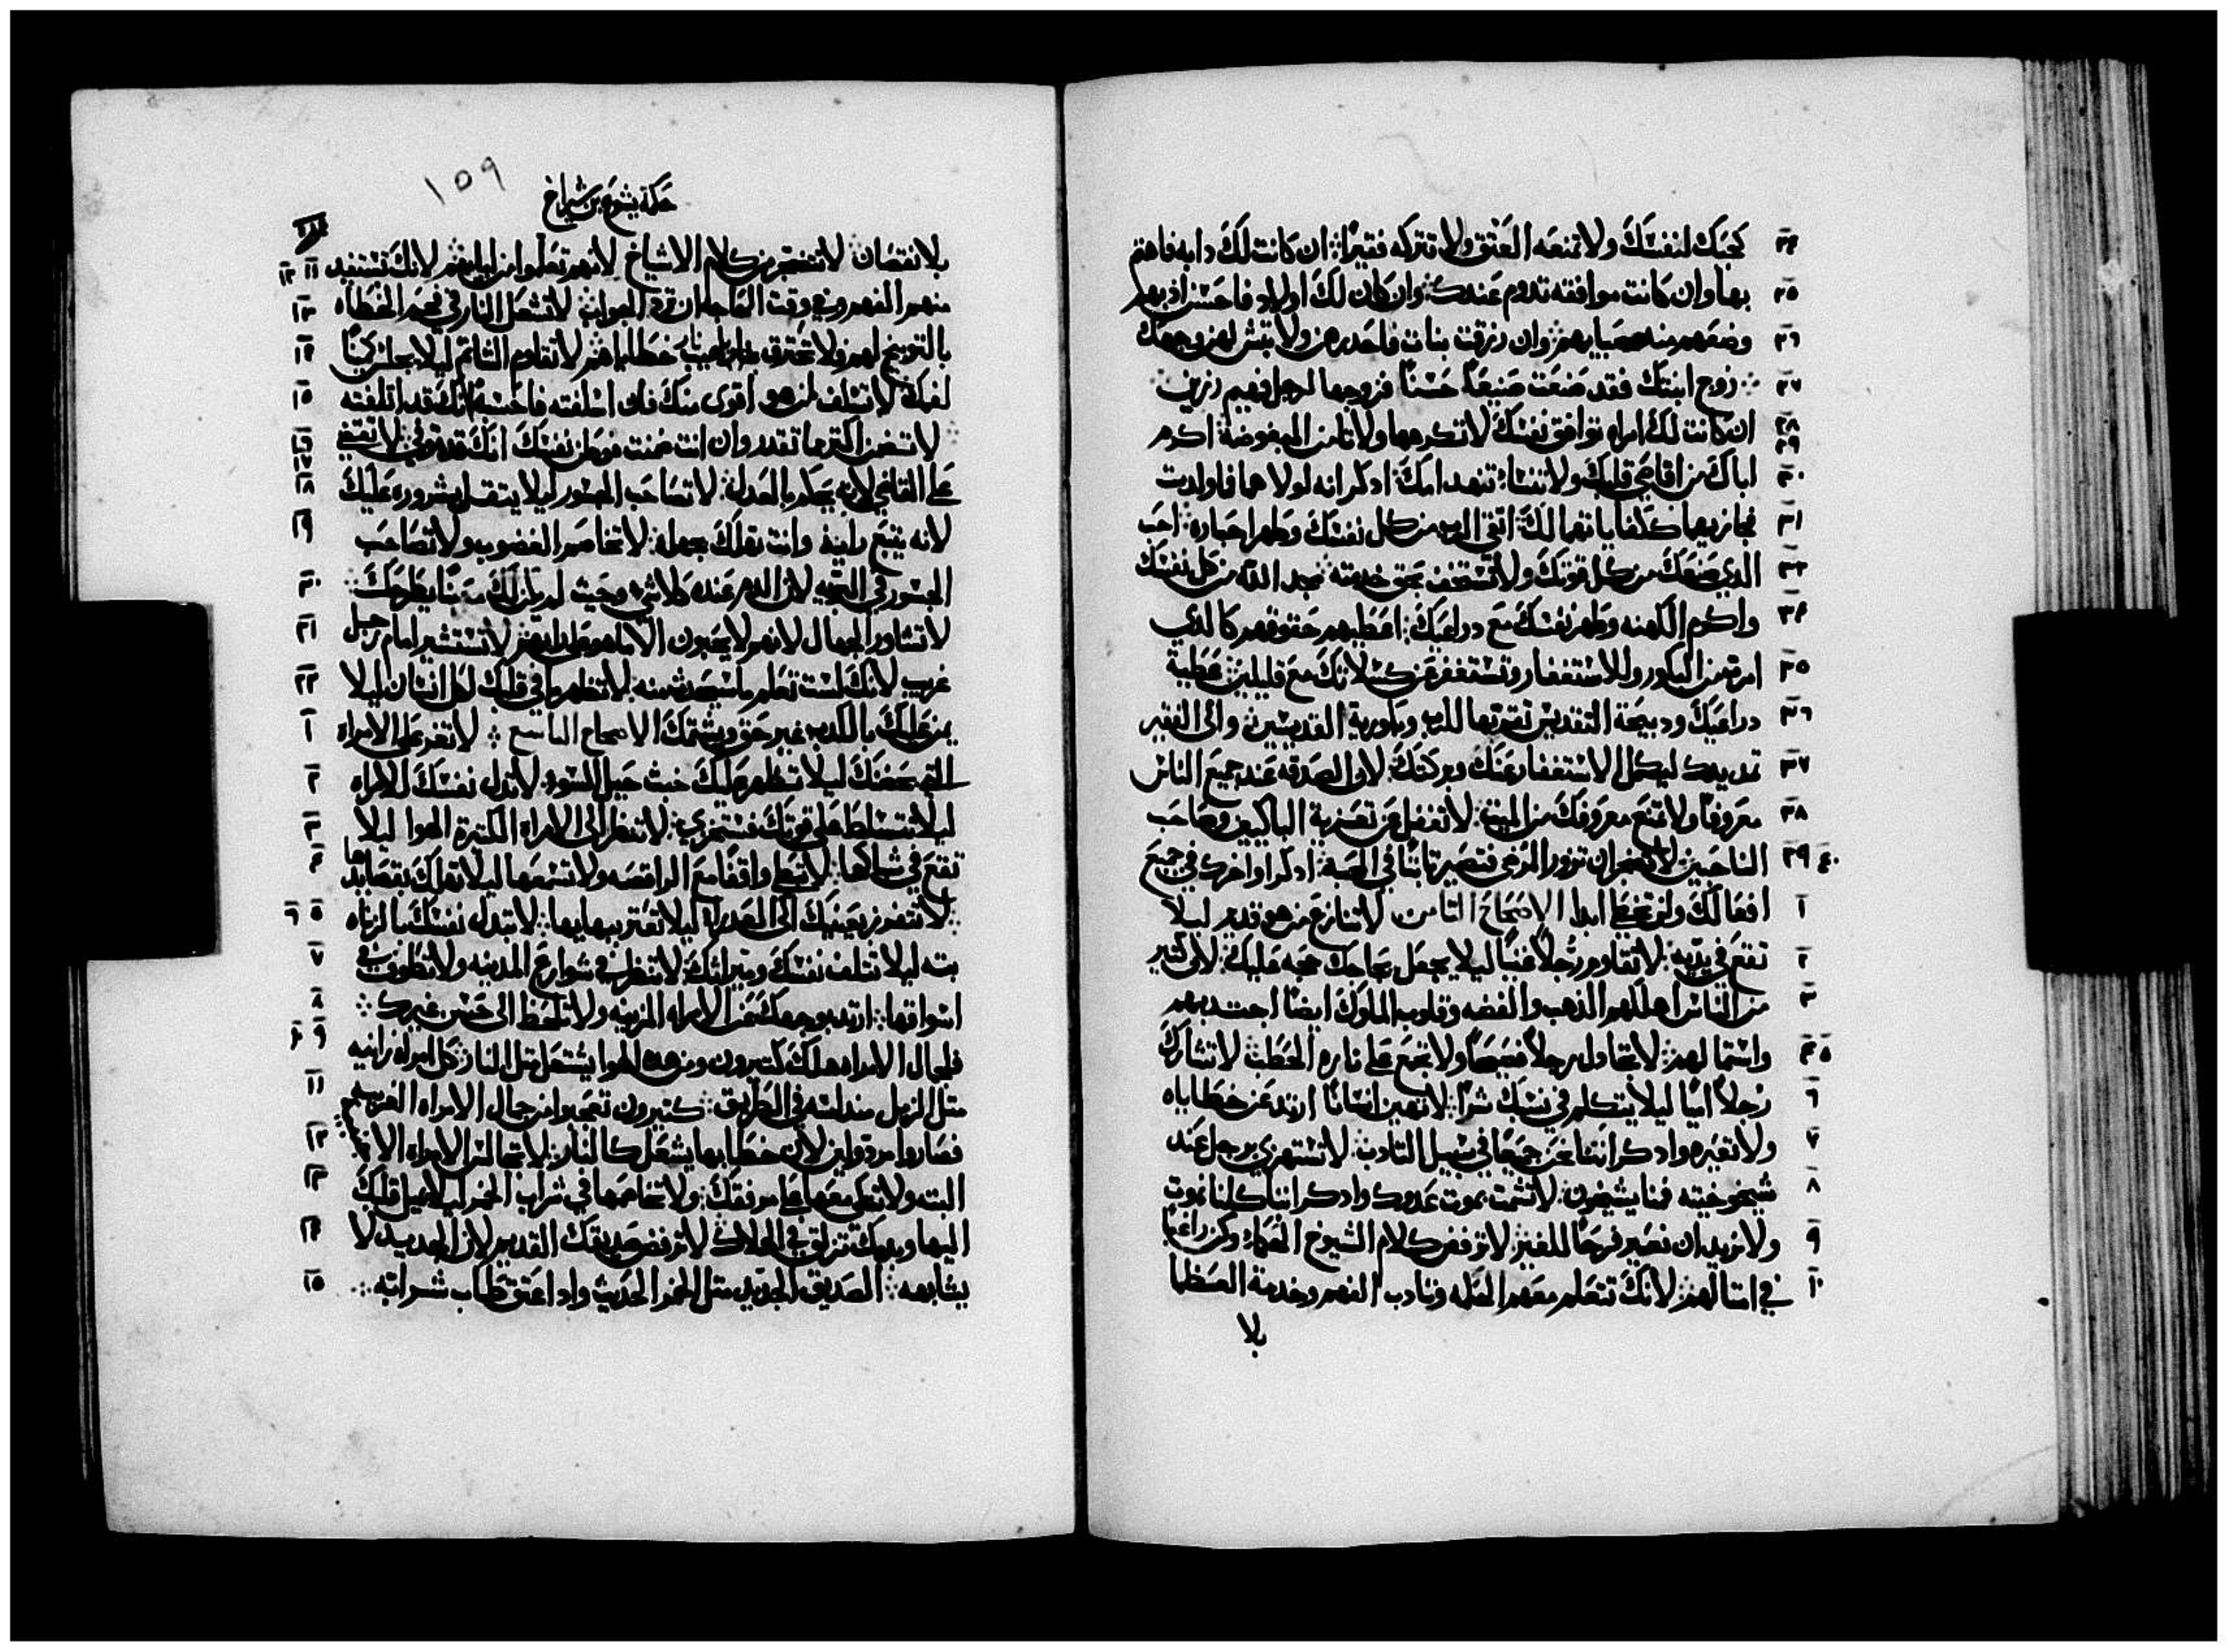 كحبك لنفسك ولا تمنعه العتق ولا تتركه فقيرًا ان كانت لك دابه فاهتم
بها وان كانت موافقه تدوم عندك وان كان لك اولاد فاحسن ادبهم
وضعهم منذ صباهم وان رزقت بنات فاحدرهن ولا تبش لهن وجهك
زوج ابنتك فقد صنعت صنيعًا حسنًا فزوجها لرجل فهيم رزين
ان كانت لك امراه توافق نفسك لا تكرهها ولا تامن المبغوضة اكرم
اباك من اقاصي قلبك ولا تنسا تنهد امك ادكر انه لولا هما فاولدت
فجازيهما كلفا ياتهما لك اتقي الرب من كل نفسك وطهر احباره احب
الدي صنعك من كل قوتك ولا تستخف بحق خدمته مجد الله من كل نفسك
واكرم الكهنه وطهر نفسك مع دراعيك اعطيهم حقوقهم كالدي
امرت من البكور وللاستغفار وتستغفر عن كسلانك مع قليلين عطية
دراعيك ودبيحة التقديس تقدمها للرب وبكورية القديسين والى الفقير
تمد يدك ليكمل الاستغفار عنك وبركتك لان الصدقه عند جميع الناس
معروفًا ولا تمنع معروفك من الميت لا تغفل عن تعزية الباكيين وصاحب
الناحبين لا تضجر ان تزور المرضى فتصير ثابتًا في المحبة ادكر اواخرك في جميع
افعالك ولن تخطي ابدا الاصحاح الثامن لا تنازع من هو قدير ليلا
تقع في يديه لا تقاوم رجلاً غنيًا ليلا يجعل بحاجك حجه عليك لان كثير
من الناس اهلكهم الذهب والفضه وقلوب الملوك ايضًا اجتدبهم
واستمالهم لا تحاول رجلاً فصيحًا ولا تجمع على ناره الحطب لا تشارك
رجلاً اميًا ليلا يتكلم في نسبك شرًا لا تهين انسانًا ارتد عن خطاياه
ولا تعيره وادكر اننا نحن جميعًا في سبيل التادب لا تستهزي برجل عند
شيخوخيته فمنا يشيخون لا تشمت بموت عدوك وادكر اننا كلنا نموت
ولا نريد ان نصير فرحًا للغير لا ترفض كلام الشيوخ الفهماء وكن راغبًا
في امثالهم لانك تتعلم منهم الحكمه وتادب الفهم وخدمة العظما
بلا
١٥٩
حكمة يشوع بن شيراخ
بلا نقصان لا تتضجر من كلام الاشياخ لانهم تعلموا من ابايهم لانك تستفيد
منهم الفهم وفي وقت الحاجه ان ترد الجواب لا تشعل النار في فحم الخطاه
بالتوبيخ لهم ولا تحترق بنار لهيب خطاياهم لا تقاوم الشاتم ليلا يجلس كمينًا
لفمك لا تسلف لمن هو اقوى منك فان اسلفته فاحسب انك قد اتلفته
لا تضمن اكتر ما تقدر وان انت ضمنت فوطن نفسك انك قد توفي لا تقضي
على القاضي لانه يحكم بالعدل لا تصاحب الجسور ليلا يتقل بشروره عليك
لانه يتبع رايه وانت تهلك بجهله لا تخاصم الغضوب ولا تصاحب
الجسور في البريه لان الدم عنده كلا شي وحيث لم يكن لك معينًا يطرحك
لا تشاور الجهال لانهم لا يحبون الا ما هو على رايهم لا تستشير امام رجل
غريب لانك لست تعلم ما سيحدث منه لا تظهر ما في قلبك لكل انسان ليلا
يمن عليك بالكدب غير حق ويشتمك الاصحاح التاسع لا تغر على الامراه
التي بحضنك ليلا تظهر عليك خبث حيل السوء لا تدل نفسك للامراه
ليلا تتسلط على قوتك فستخزي لا تنظر الى الامراه الكتيرة الهوا ليلا
تقع في شباكها لا تبقى واقفًا مع الراقصه ولا تسمعها ليلا تهلك بقصايدها
لا تتفرس بعينيك الى العدراء ليلا تعتر ببهايها لا تبدل نفسك بالزناه
بته ليلا تتلف نفسك وميراثك لا تنظر في شوارع المدينه ولا تطوف في
اسواقها ارتد بوجهك عن الامراه المزينه ولا تلحظ الى حسن غيرك
فلجمال الامراه هلك كتيرون ومن هدا الهوا يشتعل متل النار كل امراه زانيه
متل الزبل منداسه في الطريق كتيرون تعجبوا من جمال الامراه الغريبه
فصاروا مردولين لان خطابها يشعل كالنار لا تجالس الامراه الاجنبيه
البته ولا تتكي معها على مرفقك ولا تخاصمها في شراب الخمر ليلا يميل قلبك
اليها وبدمك تزلق في الهلاك لا ترفض صديقك القديم لان الجديد لا
يشابهه الصديق الجديد متل الخمر الحديث وادا عتق طاب شرابه